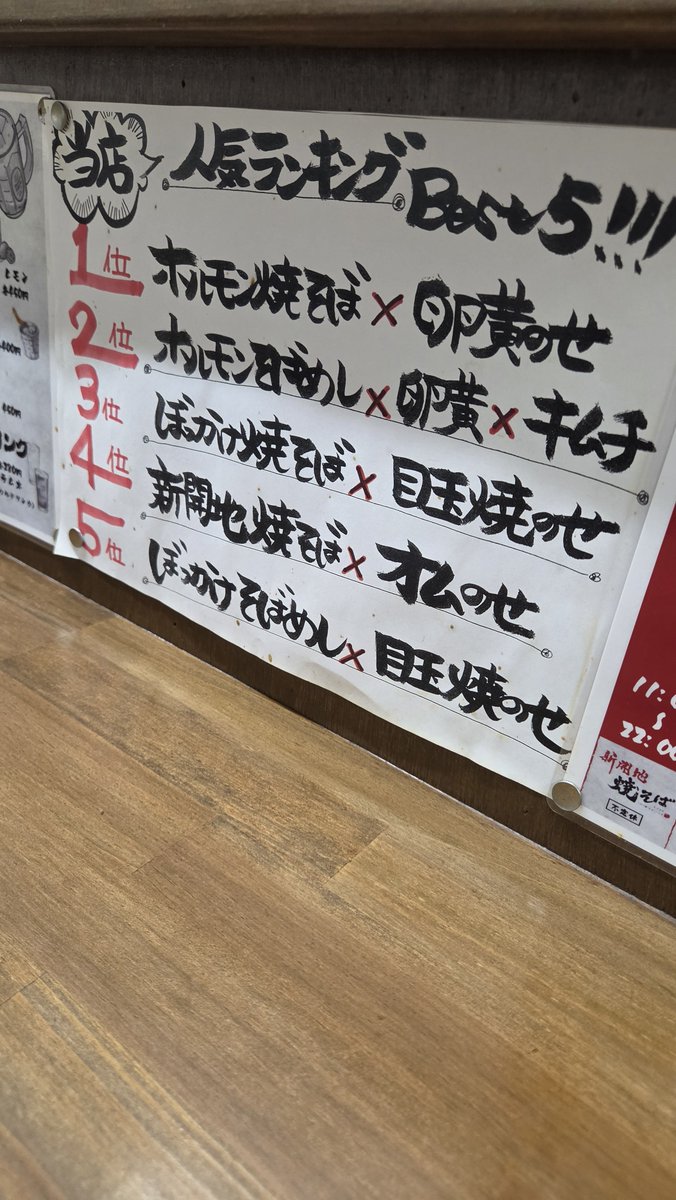 当店 人気ランキング Best 5!!!
1位 ホルモン焼そば×卵黄のせ
2位 ホルモンそばめし×卵黄×キムチ
3位 ぼっかけ焼そば×目玉焼のせ
4位 新開地焼そば×オムのせ
5位 ぼっかけそばめし×目玉焼のせ
レモン
リング
11:
〜
22:00
新開地
焼そば
不定休